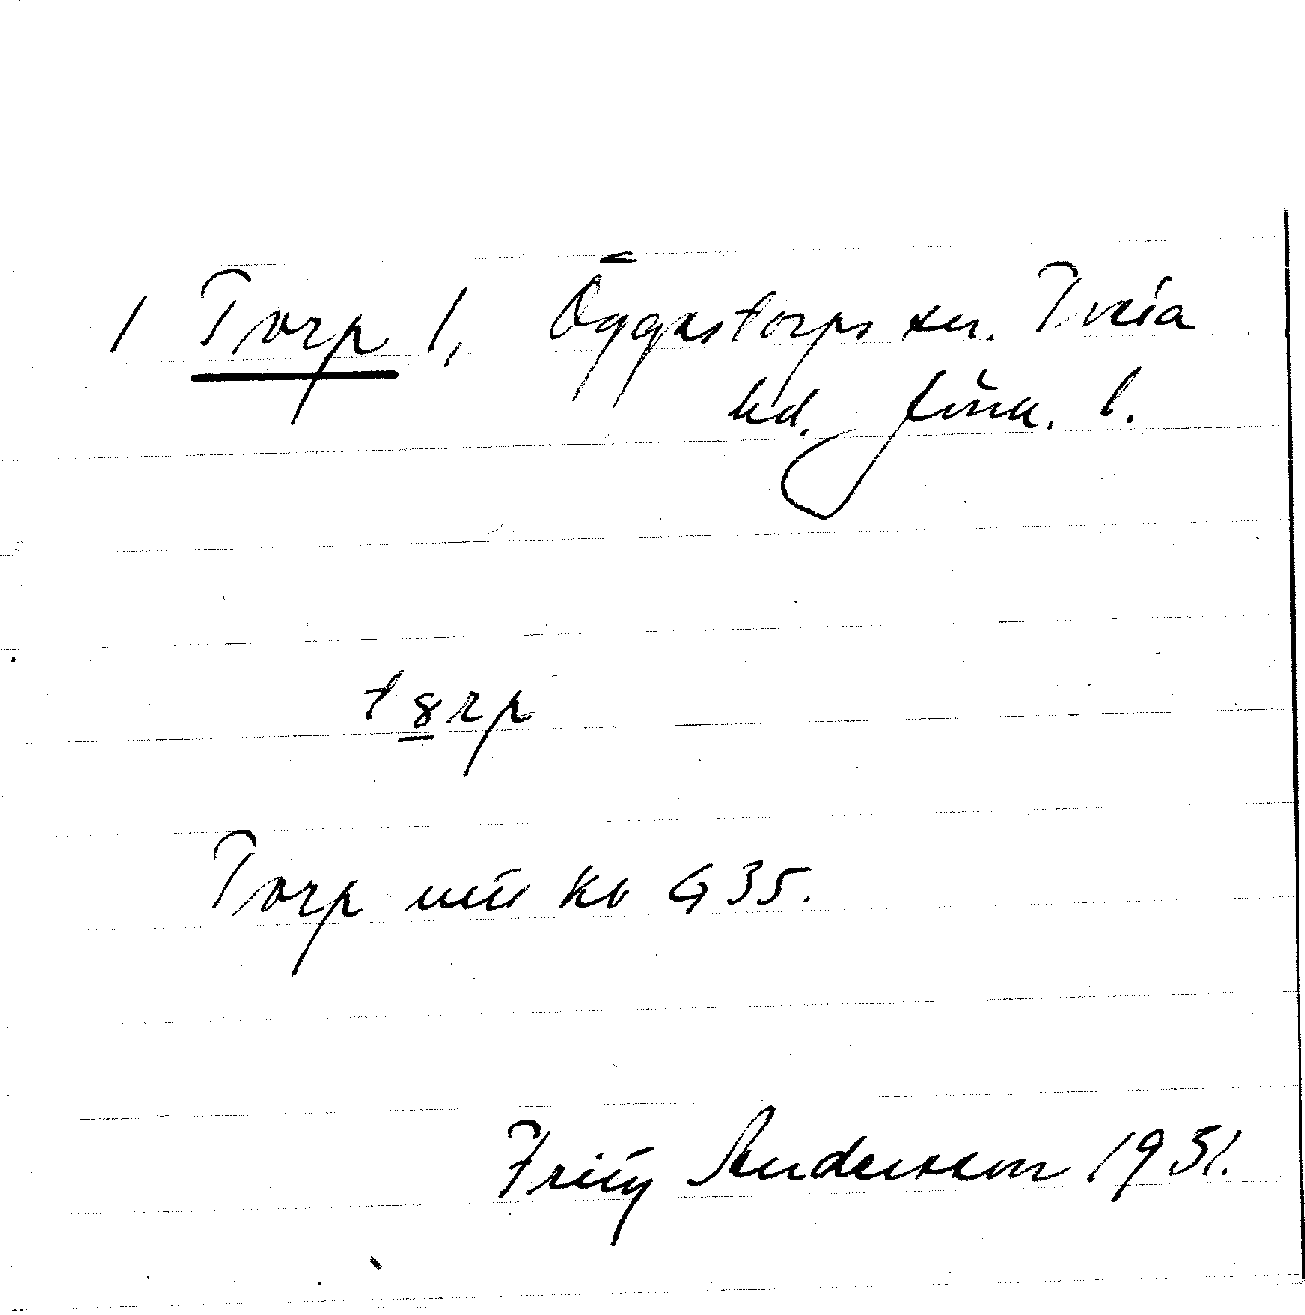 1 Torp 1, Öggestorps sn. Tveta
hd. Jönk. l.
t8rp
Torp utu kv G 35.
Fritz Andersson 1931.